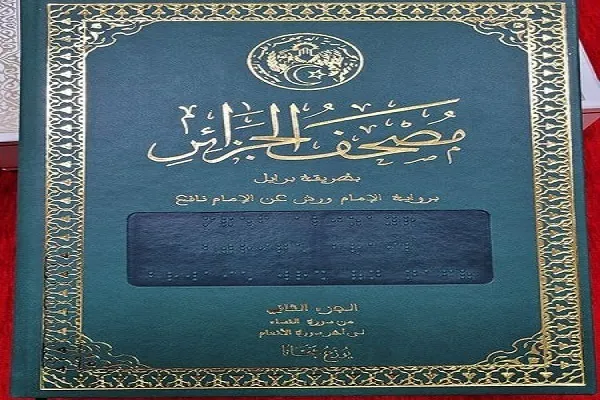 مصحف الجزائر
بطريقة برايل
برواية الإمام ورش عن الإمام نافع
الجزء الثاني
من سورة النساء
إلى آخر سورة الأنعام
يوزع مجانا